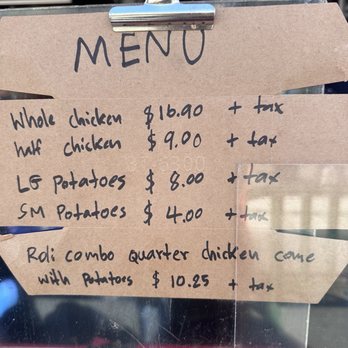 MENU
Whole chicken $16.90 + tax
half chicken $9.00 + tax
LG Potatoes $8.00 + tax
SM Potatoes $4.00 + tax
Roli combo quarter chicken come
with Potatoes $10.25 + tax